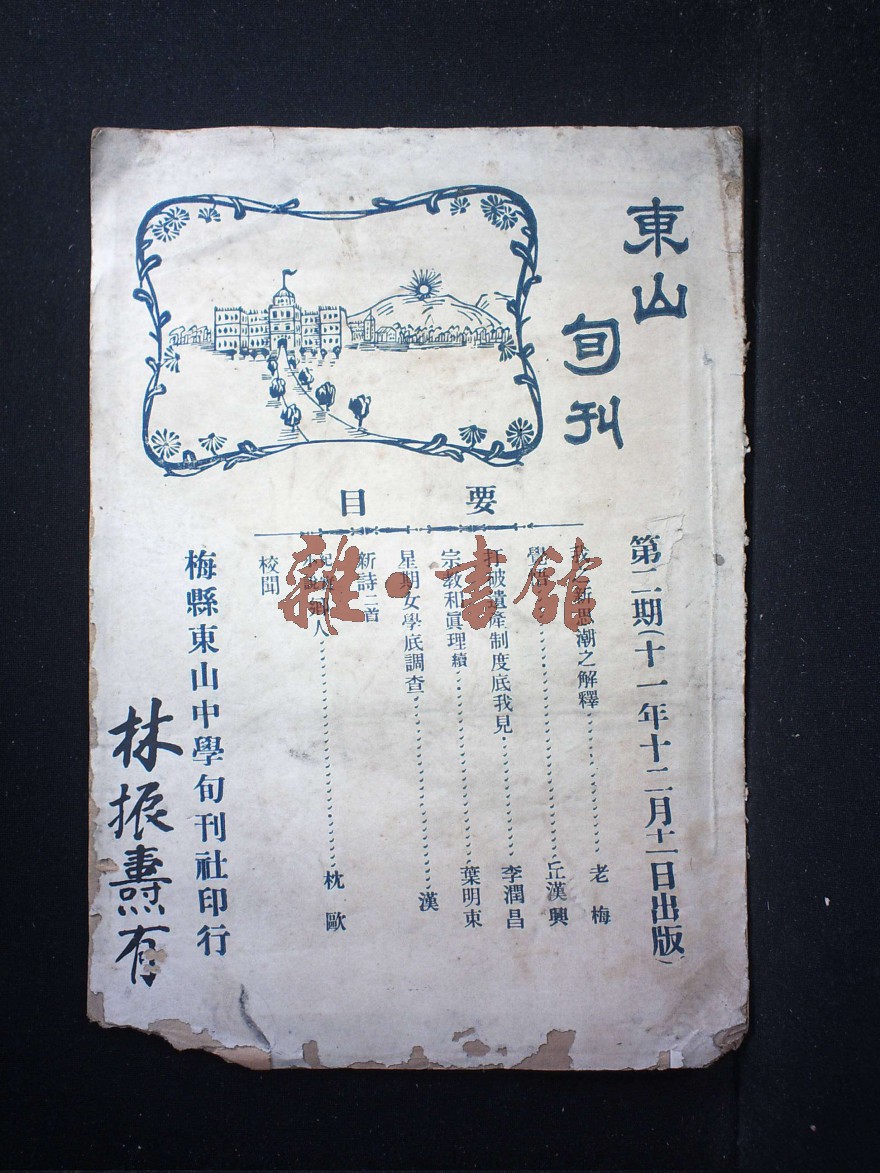 東山
旬刊
第二期(十一年十二月十一日出版)
要目
我之新思潮之解釋 老梅
學悟 丘漢興
打破遺產制度底我見 李潤昌
宗教和眞理續 葉明東
星期女學底調查 漢
新詩二首
小說 鄉人 枕歐
校聞
梅縣東山中學旬刊社印行
林振燾有
雜·書館